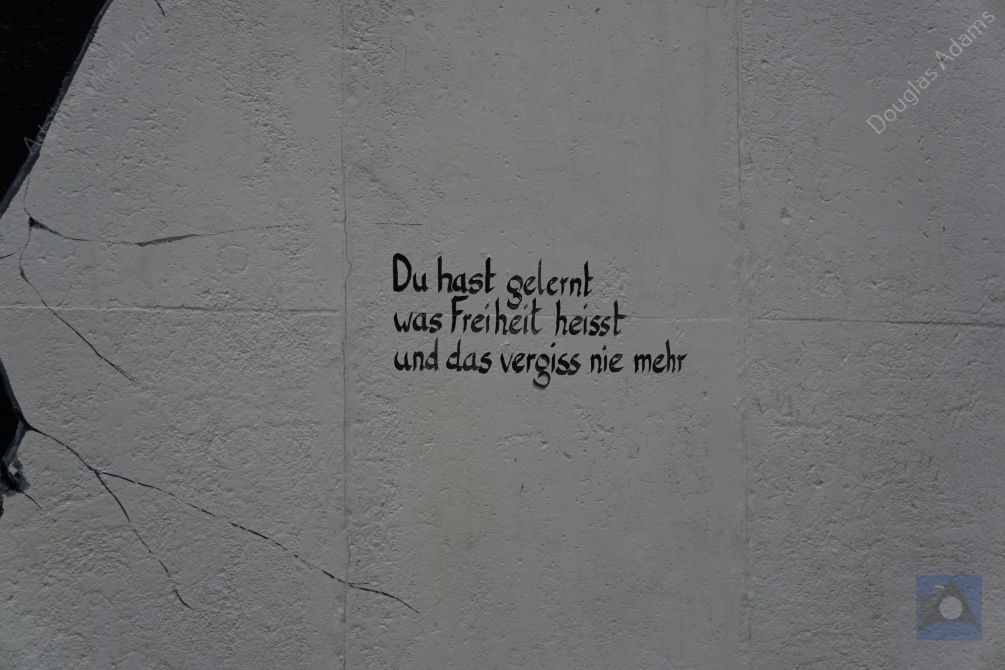 Douglas Adams
Du hast gelernt
was Freiheit heisst
und das vergiss nie mehr